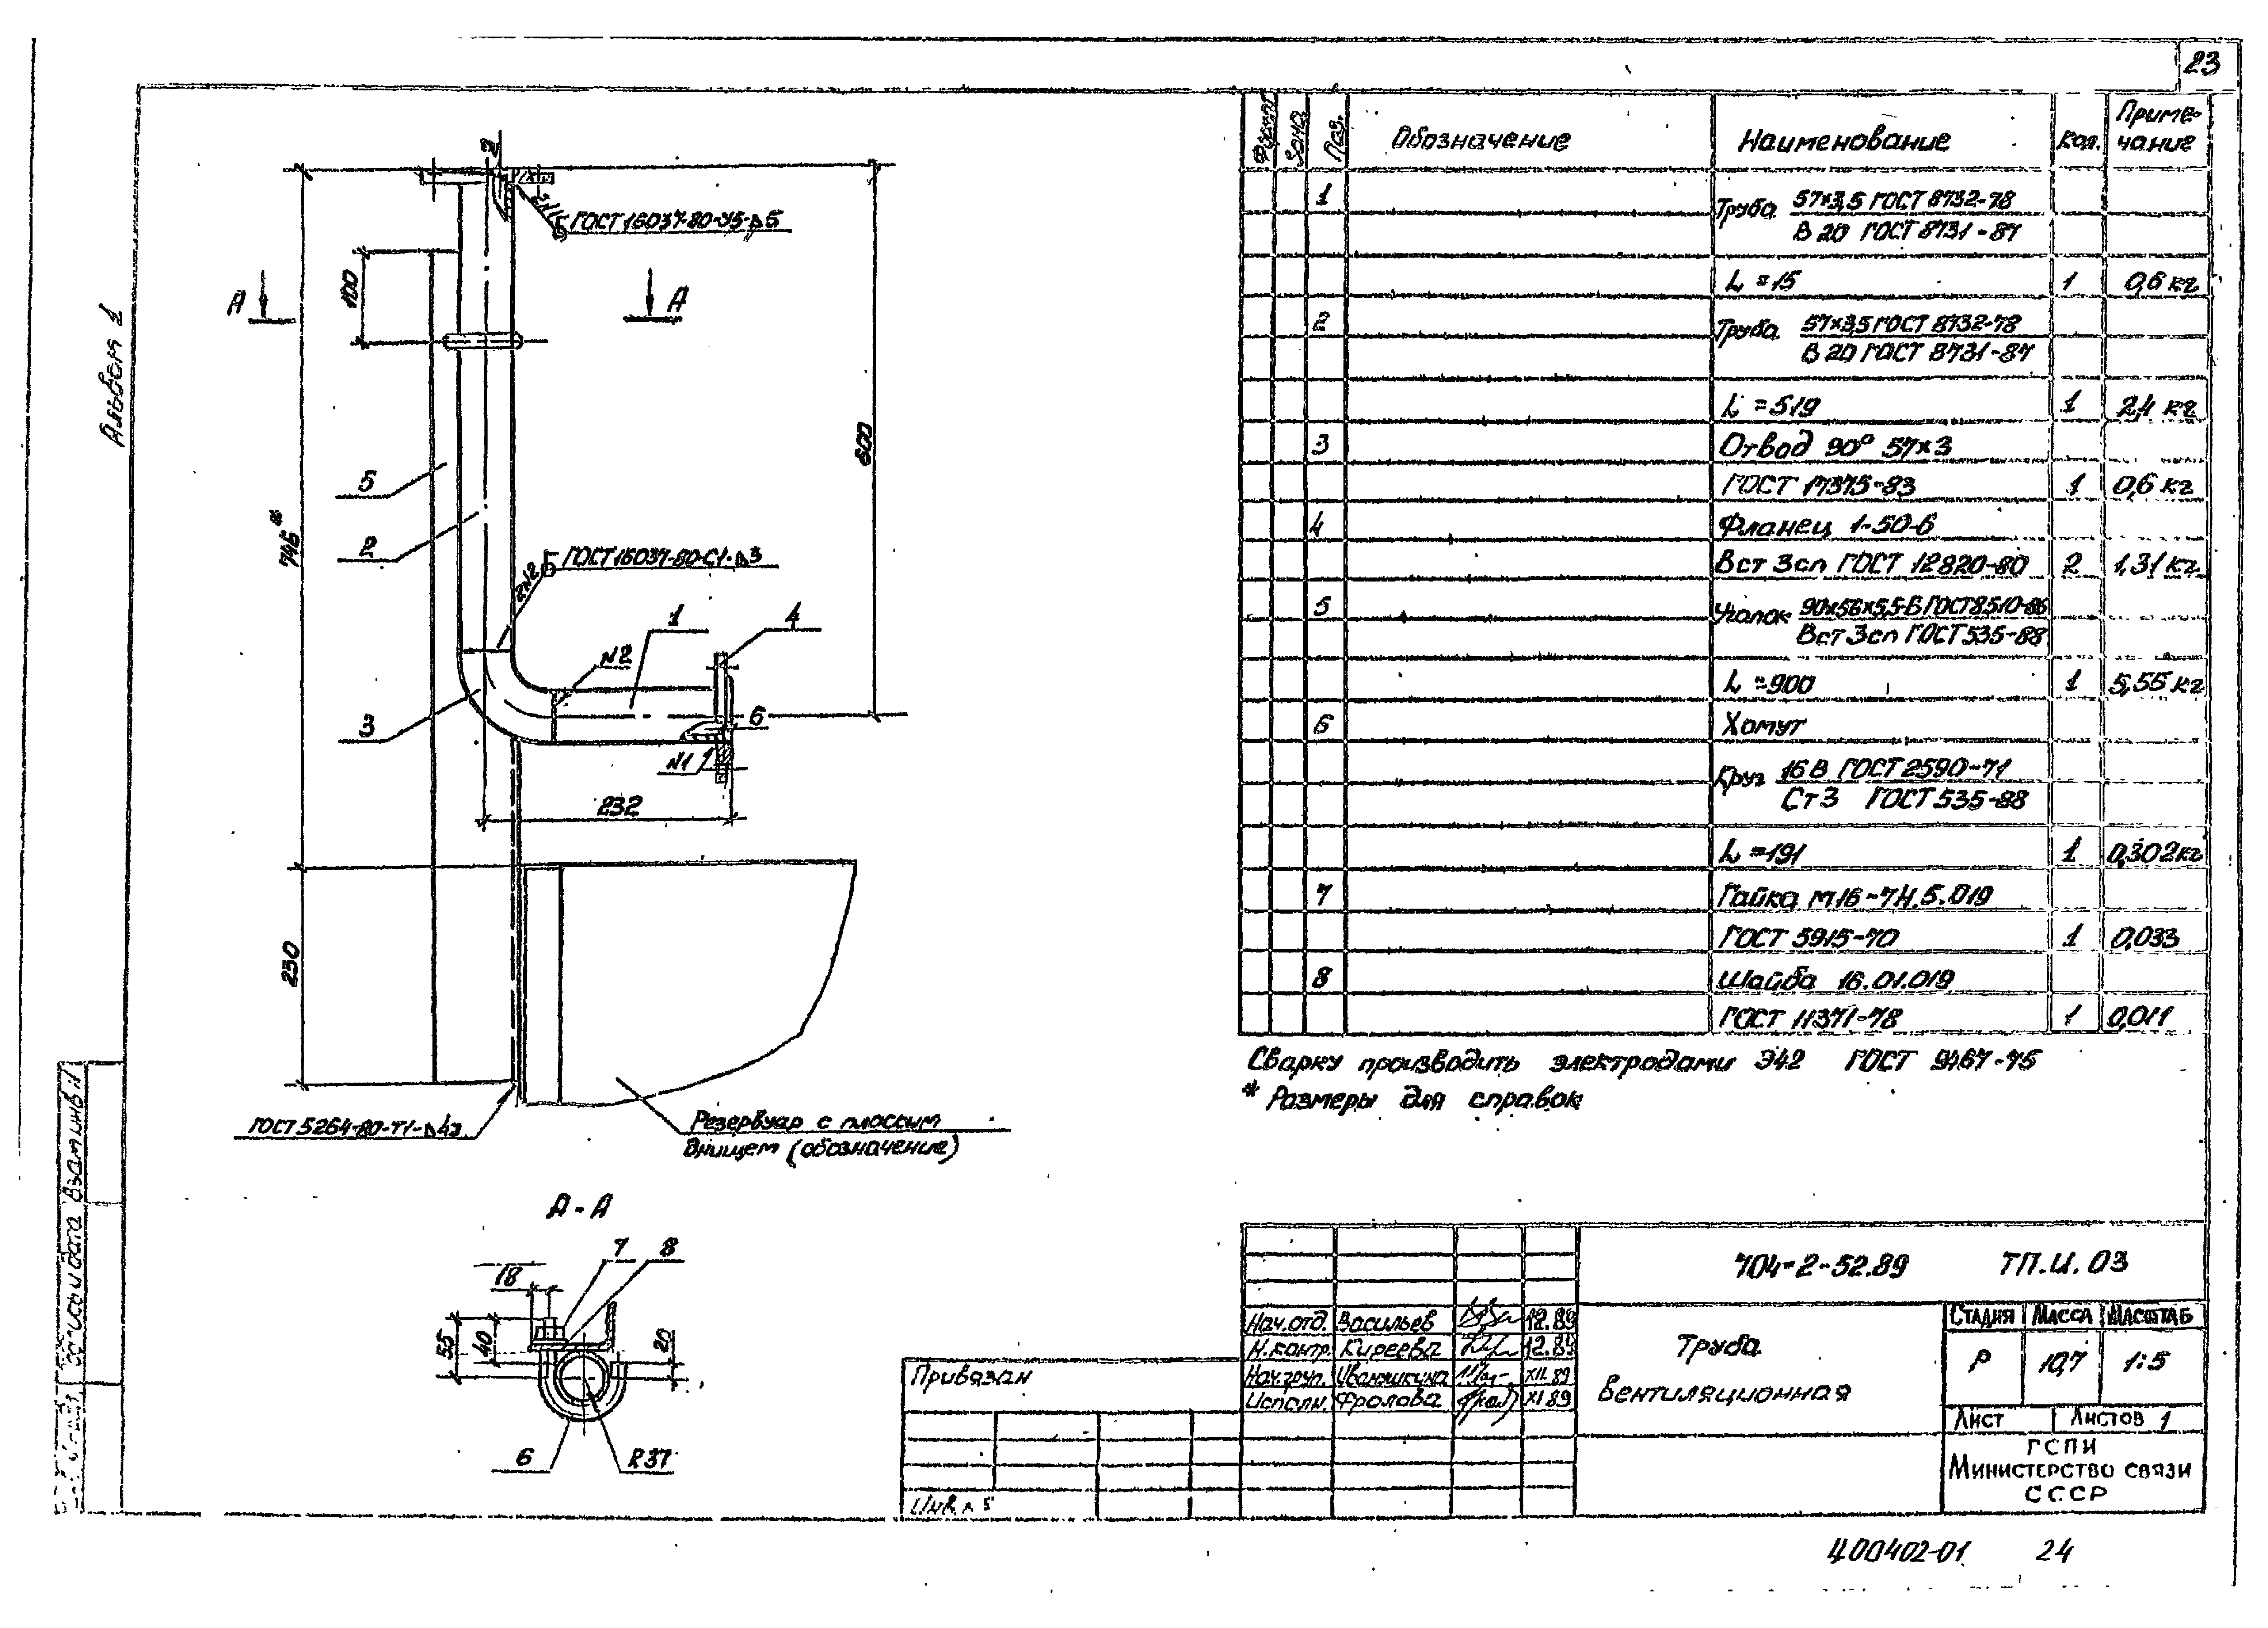 23
Альбом 1
Формат
Зона
Поз.
Обозначение
Наименование
Кол.
Приме-
чание
1
Труба 57×3,5 ГОСТ 8732-78
В 20 ГОСТ 8731-87
L=15 1 0,6 кг
2
Труба 57×3,5 ГОСТ 8732-78
В 20 ГОСТ 8731-87
L=519 1 2,4 кг
3 Отвод 90° 57×3
ГОСТ 17375-83 1 0,6 кг
4 Фланец 1-50-6
Вст 3сп ГОСТ 12820-80 2 1,31 кг
5 Уголок 90×56×5,5-В ГОСТ 8510-86
Вст 3сп ГОСТ 535-88
L=900 1 5,55 кг
6 Хомут
Круг 16В ГОСТ 2590-71
Ст 3 ГОСТ 535-88
L=191 1 0,302кг
7 Гайка М16-7Н.5.019
ГОСТ 5915-70 1 0,033
8 Шайба 16.01.019
ГОСТ 11371-78 1 0,011
Сварку производить электродами Э42 ГОСТ 9467-75
* Размеры для справок
2
№1
ГОСТ 16037-80-У5-⊿5
100
А
А
600
5
746*
2
№2
ГОСТ 16037-80-С1-⊿3
1
4
№2
3
6
№1
232
230
ГОСТ 5264-80-Т1-⊿4
Резервуар с плоским
днищем (обозначение)
А-А
7
8
18
55
40
20
6
R37
Взам.инв.№
Подпись и дата
704-2-52.89 ТП.И.03
Нач.отд. Васильев 12.89
Н.контр. Киреева 12.89
Нач.груп. Иванюшкина XII.89
Исполн. Фролова XI 89
Труба
вентиляционная
Стадия Масса Масштаб
Р 10,7 1:5
Лист Листов 1
ГСПИ
Министерство связи
СССР
Привязан
Инв.№
400402-01 24